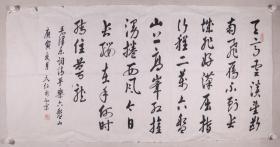 天高雲淡望斷
南飛雁不到長
城非好漢屈指
行程二萬六盤
山上高峰紅旗
漫捲西風今日
長纓在手何時
縛住蒼龍
毛澤東詞清平樂六盤山
庚寅